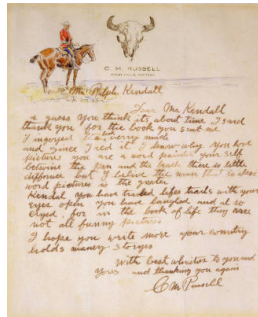 C. M. RUSSELL
GREAT FALLS, MONTANA
Mr Ralph Kendall
Dear Mr Kendall
I guess you think its about time I said
thank you for the book you sent me
I injoyed reading it
and since I red it I know why you love
pictures you are a word painter your self
betwine the pen and the brush there is little
difference but I belive the man that makes
word pictures is the greater
Kendal you have ridden lifes trails with your
eyes open you have laughed and also
cryed, for in the book of life they are
not all funny pictures
I hope you write more your country
holds maney storyes
With best whishes to you and
yours and thanking you again
C M Russell